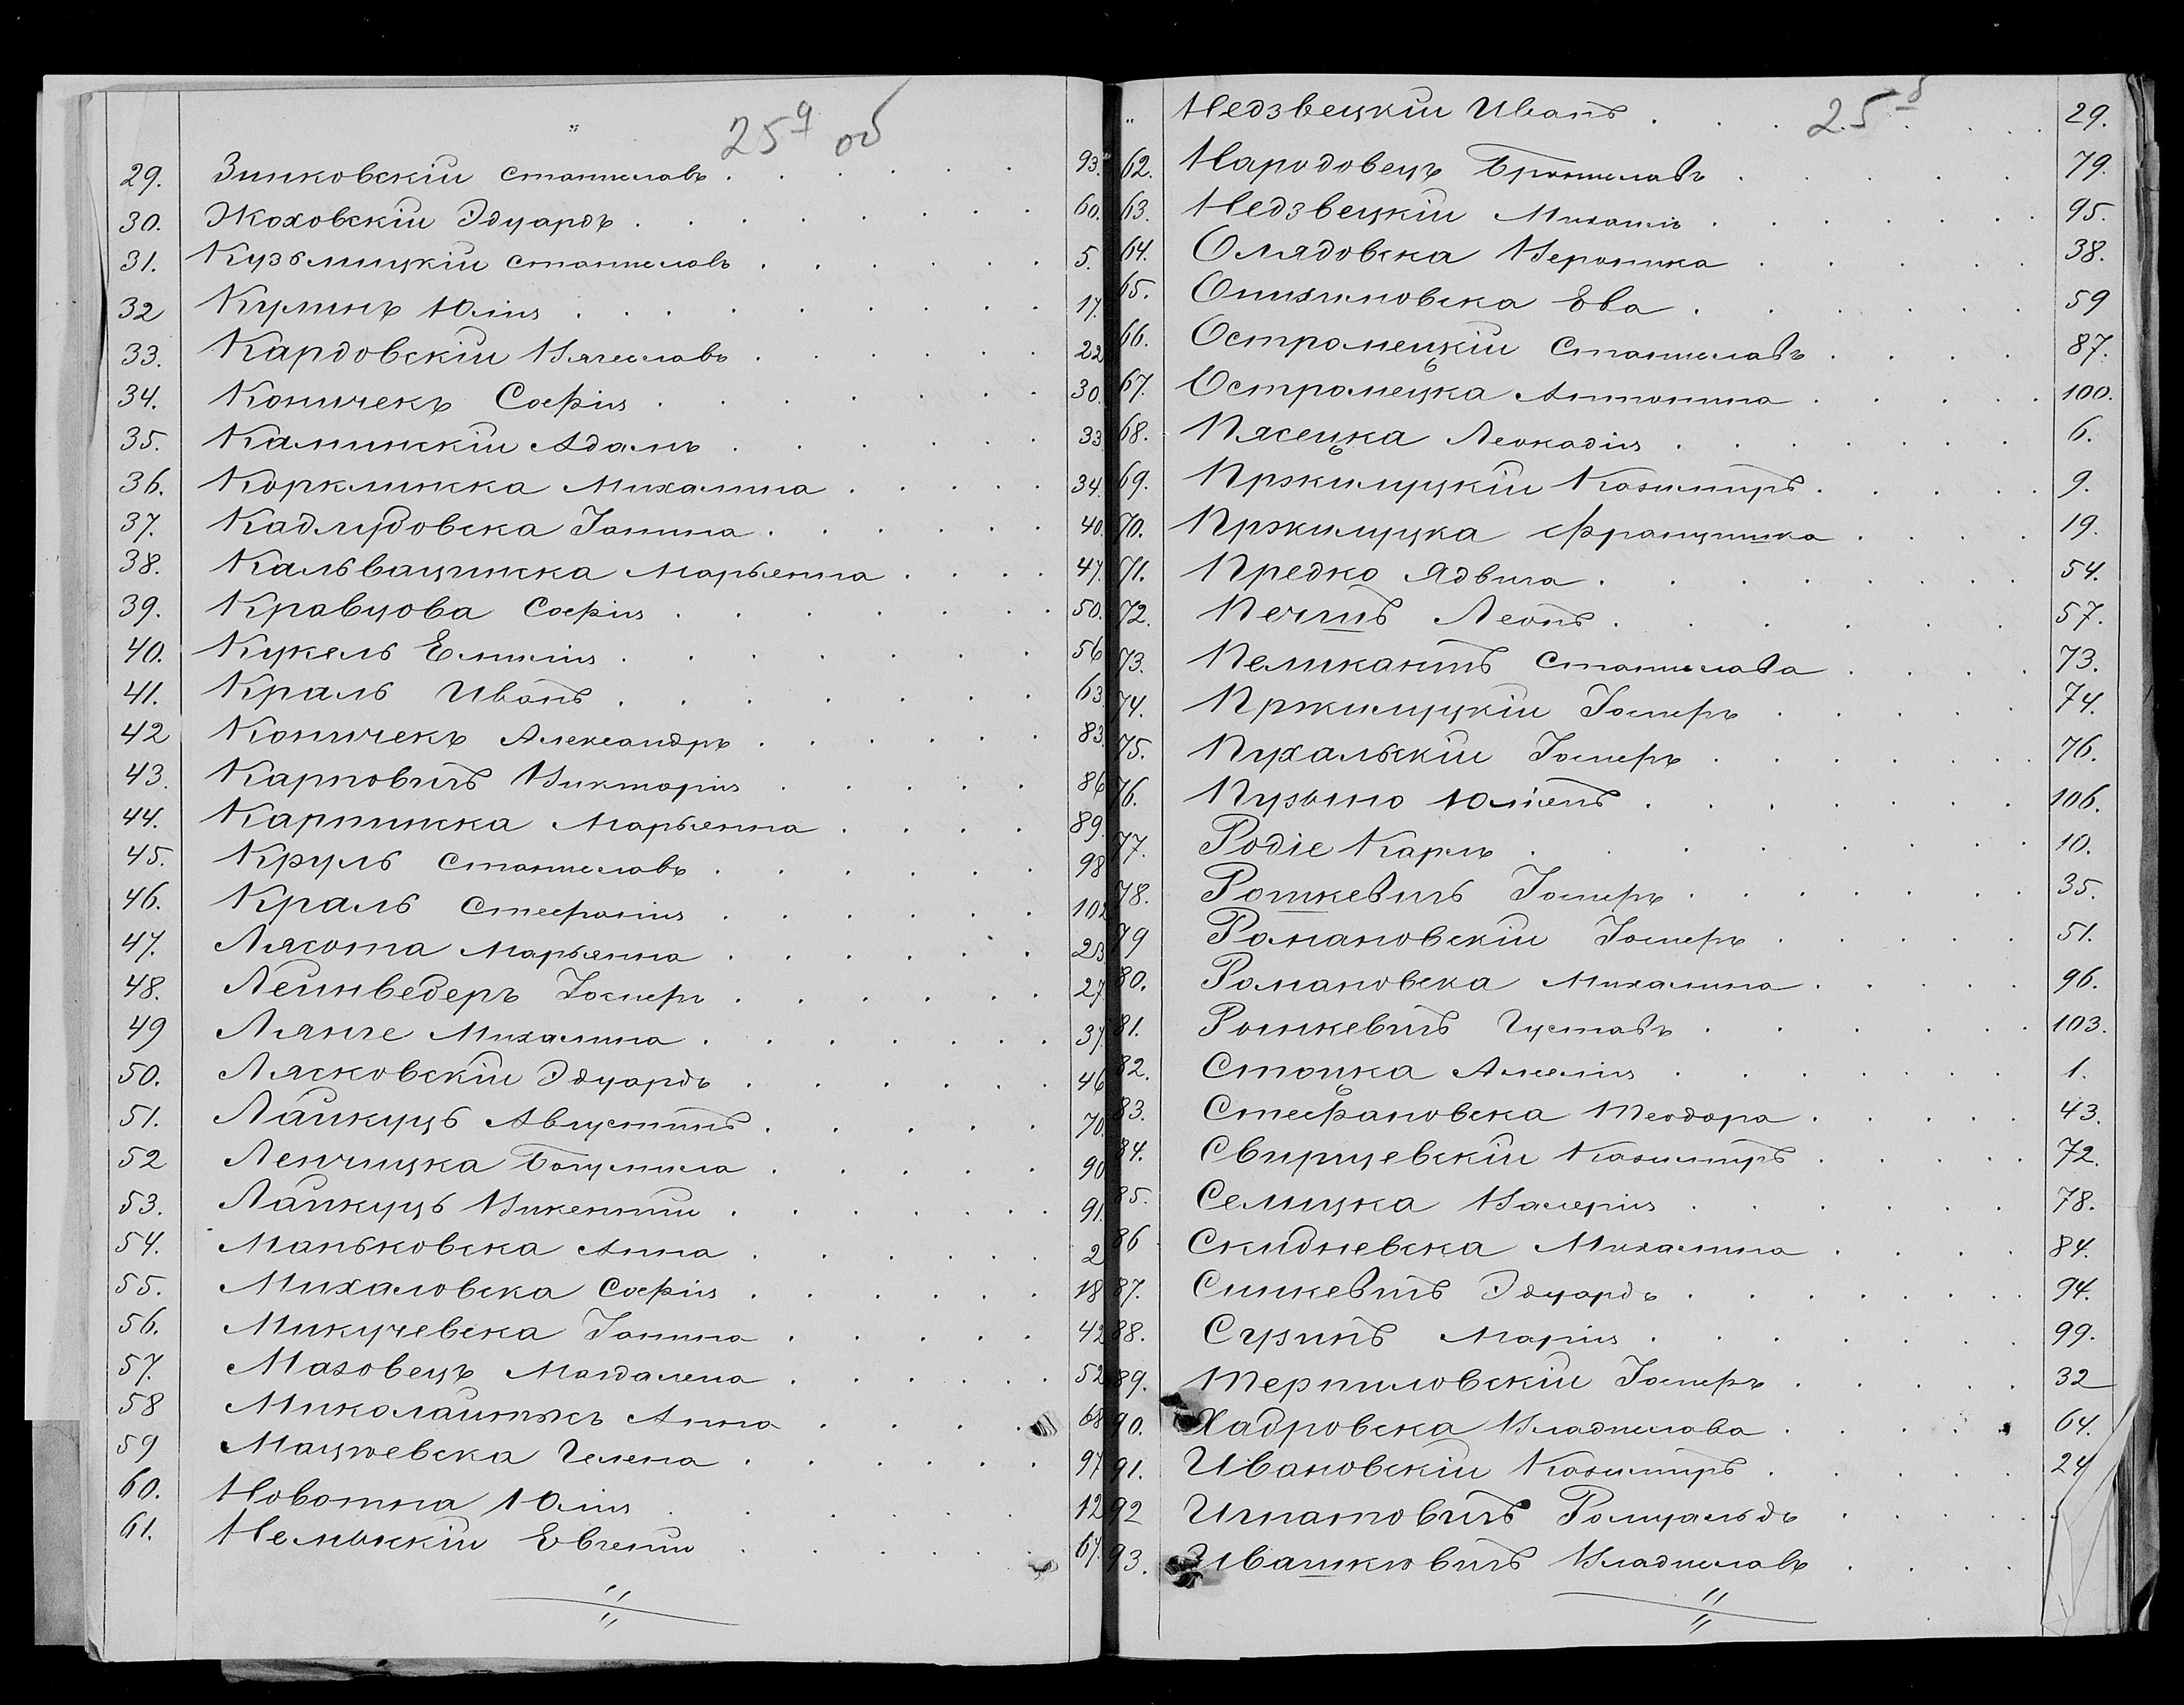 25 9 об
29. Зинковскій Станиславъ 93.
30. Жоховскій Эдуардъ 60.
31. Кузьмицкій Станиславъ 5.
32 Кулинъ Юлія 17.
33. Кардовскій Вячеславъ 22
34. Коничекъ Софія 30.
35. Калинскій Адамъ 33
36. Корклинска Михалина 34.
37. Кадлубовска Іанина 40.
38. Кальвацинска Марьянна 47.
39. Кравцова Софія 50.
40. Кукель Емилія 56
41. Краль Иванъ 63
42 Коничекъ Александръ 83.
43. Карповичъ Викторія 86
44. Карпинска Марьянна 89.
45. Круль Станиславъ 98
46. Краль Стефанія 102
47. Лясота Марьянна 23
48. Лейнведеръ Іосифъ 27
49 Лянге Михалина 37.
50. Лясковскій Эдуардъ 46
51. Лайкуць Августинъ 70.
52 Ленчицка Богумила 90
53. Лайкуць Викентій 91.
54. Маньковска Анна 2
55. Михаловска Софія 18
56. Микучевска Іанина 42
57. Мазовецъ Магдалена 52
58 Анна 68
59 Мацѣевска Гелена 97
60. Новотна Юлія 12
61. Евгеній 67.
" Недзвецкій Иванъ 25 29.
62. Народовецъ Брониславъ 79.
63. Недзвецкій Михаилъ 95.
64. Олядовска Вероника 38.
65. Ева 59
66. Остромецкій Станиславъ 87.
67. Остромецка Антонина 100.
68. Пясецка Леокадія 6.
69. Пржилуцкій Казимиръ 9.
70. Пржилуцка Францишка 19.
71. Предко Ядвига 54.
72. Печинъ Леонъ 57.
73. Пеликантъ Станислава 73.
74. Пржилуцкій Іосифъ 74.
75. Пухальскій Іосифъ 76.
76. Пузыно Юліянъ 106.
77. Родіе Карлъ 10.
78. Рошкевичъ Іосифъ 35.
79 Романовскій Іосифъ 51.
80. Романовска Михалина 96.
81. Рошкевичъ Густавъ 103.
82. Стоцка Амелія 1.
83. Стефановска Теодора 43.
84. Свирщевскій Казимиръ 72.
85. Селицка Валерія 78.
86 Скидневска Михалина 84.
87. Синкевичъ Эдуардъ 94.
88. Сузинъ Марія 99.
89. Терпиловскій Іосифъ 32
90. Хадровска Владислава 64.
91. Ивановскій Казимиръ 24
92 Игнатовичъ Ромуальдъ
93. Ивашкѣвичъ Владиславъ